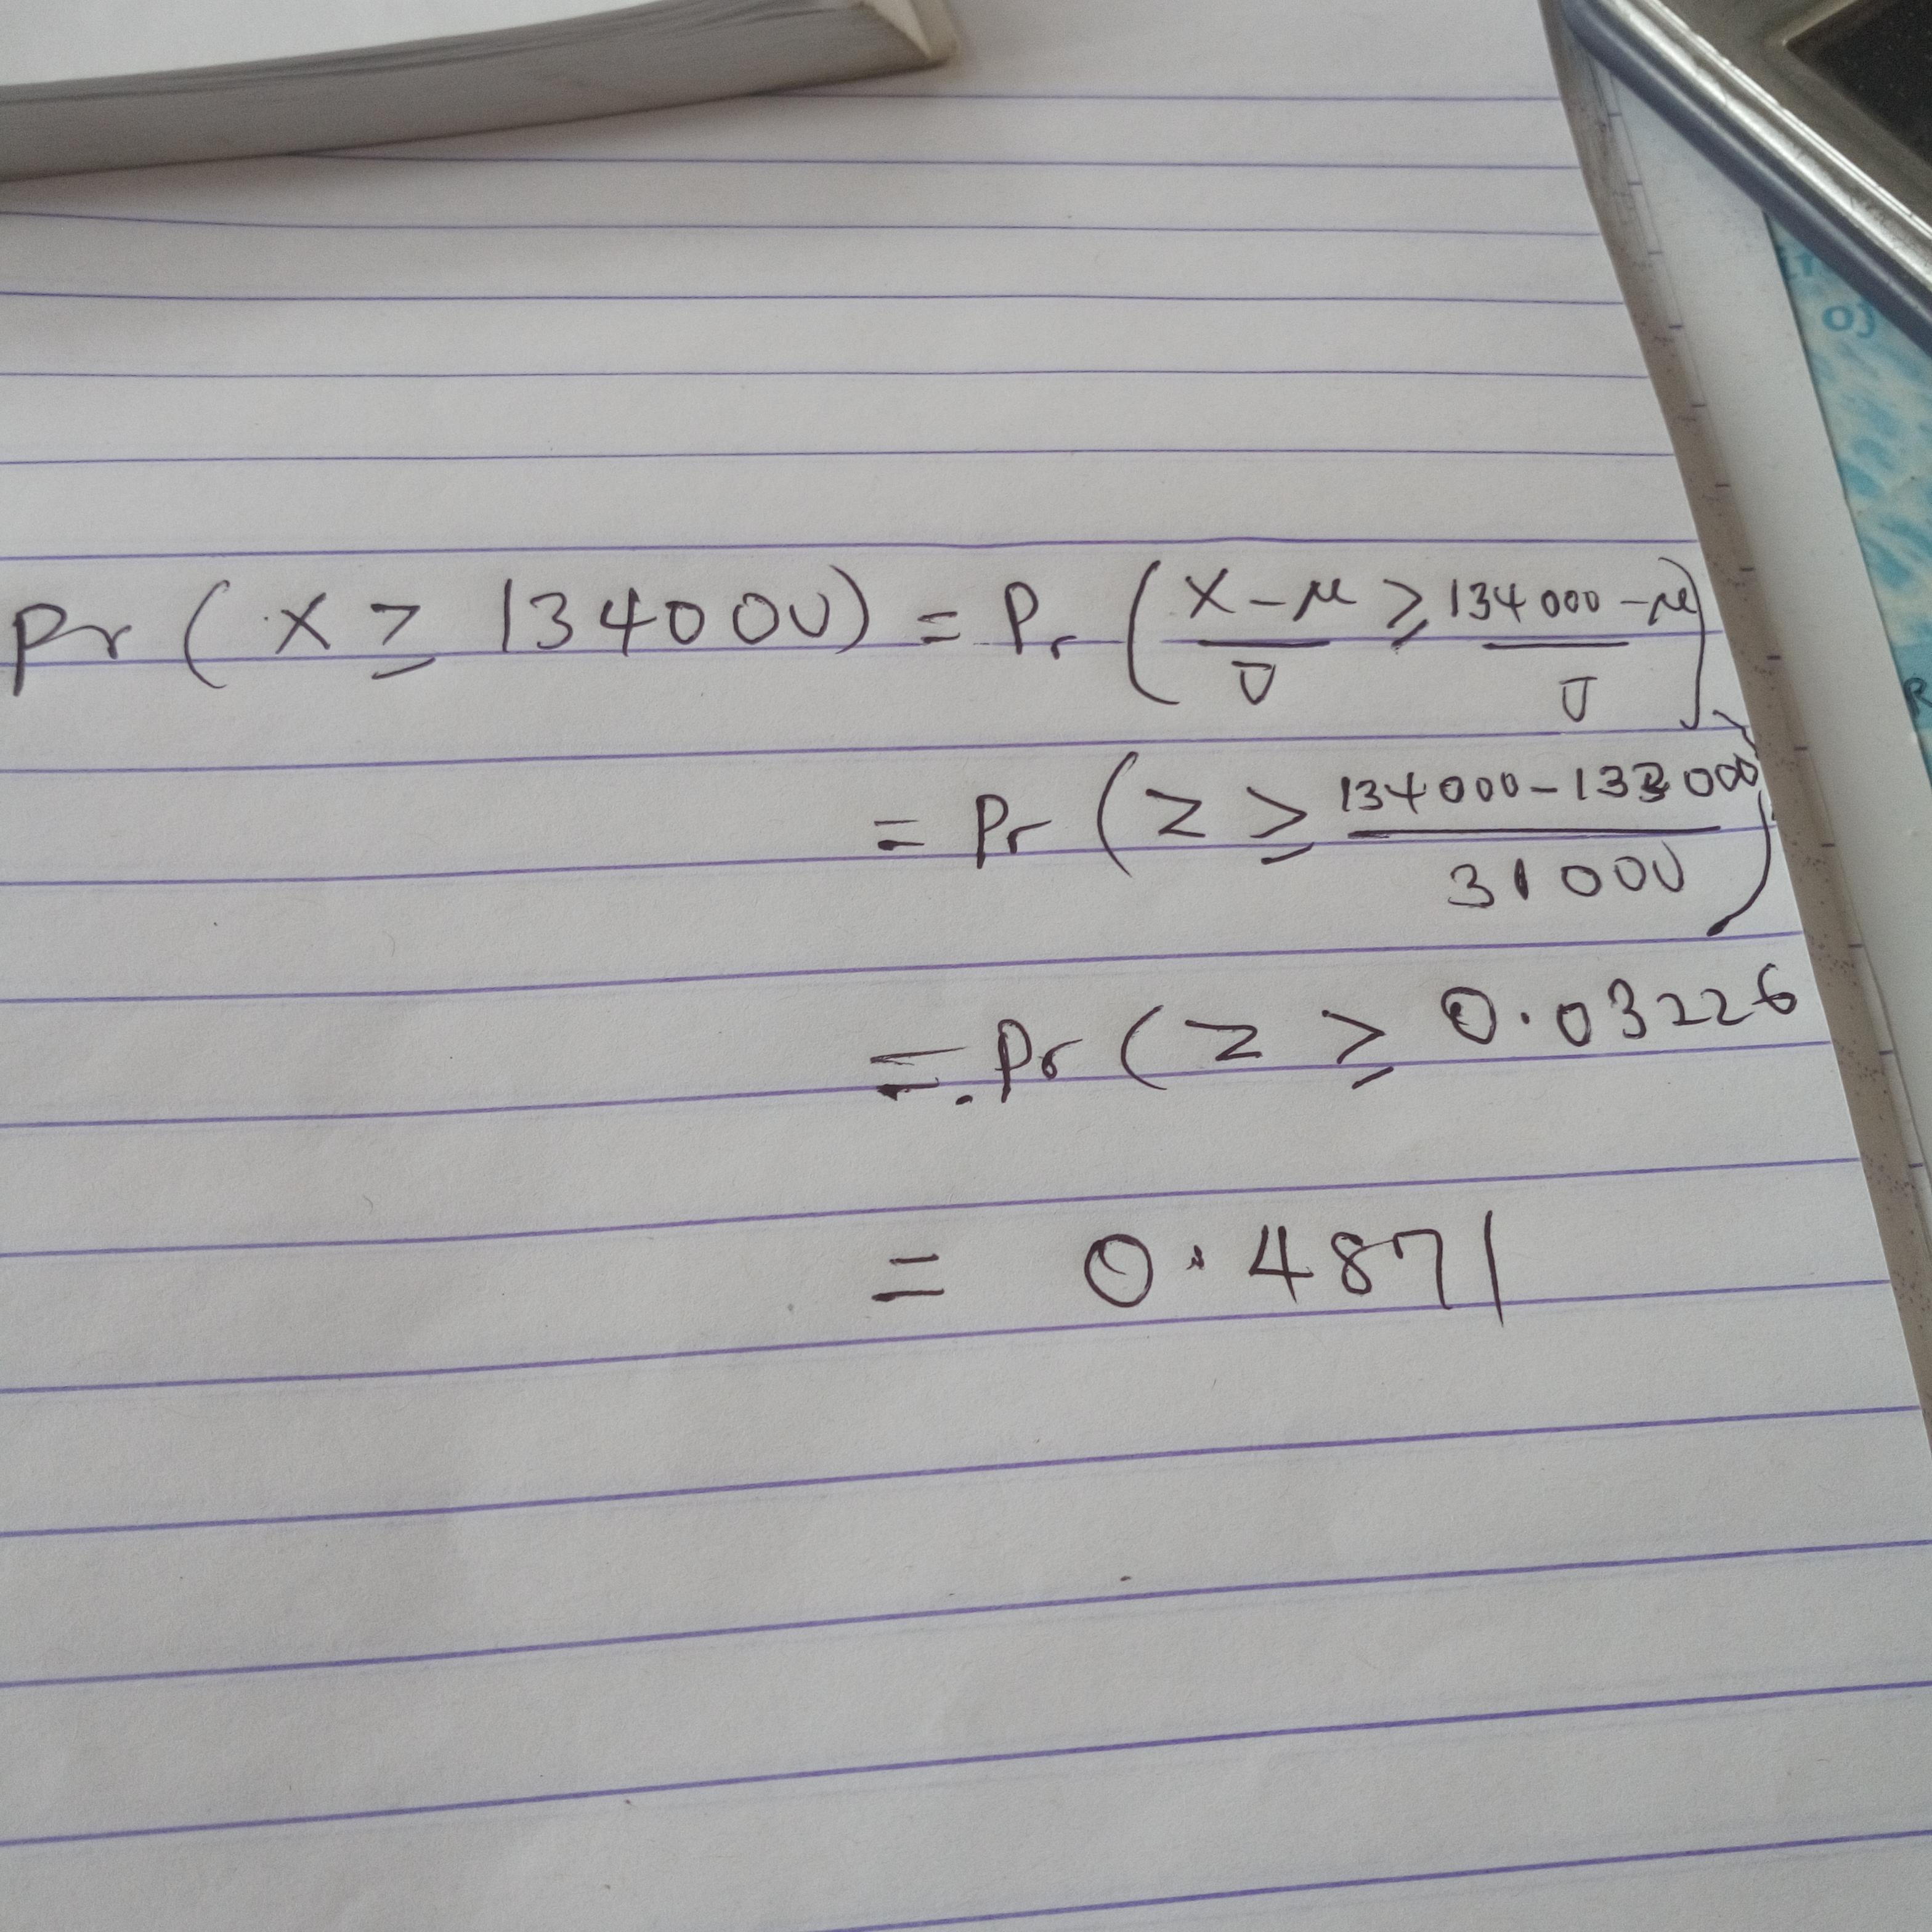 Pr ( X ≥ 134000) = Pr ( X-μ/σ ≥ 134000-μ/σ )
= Pr ( Z ≥ 134000-133000/31000 )
= Pr ( Z ≥ 0.03226
= 0.4871
0)
R